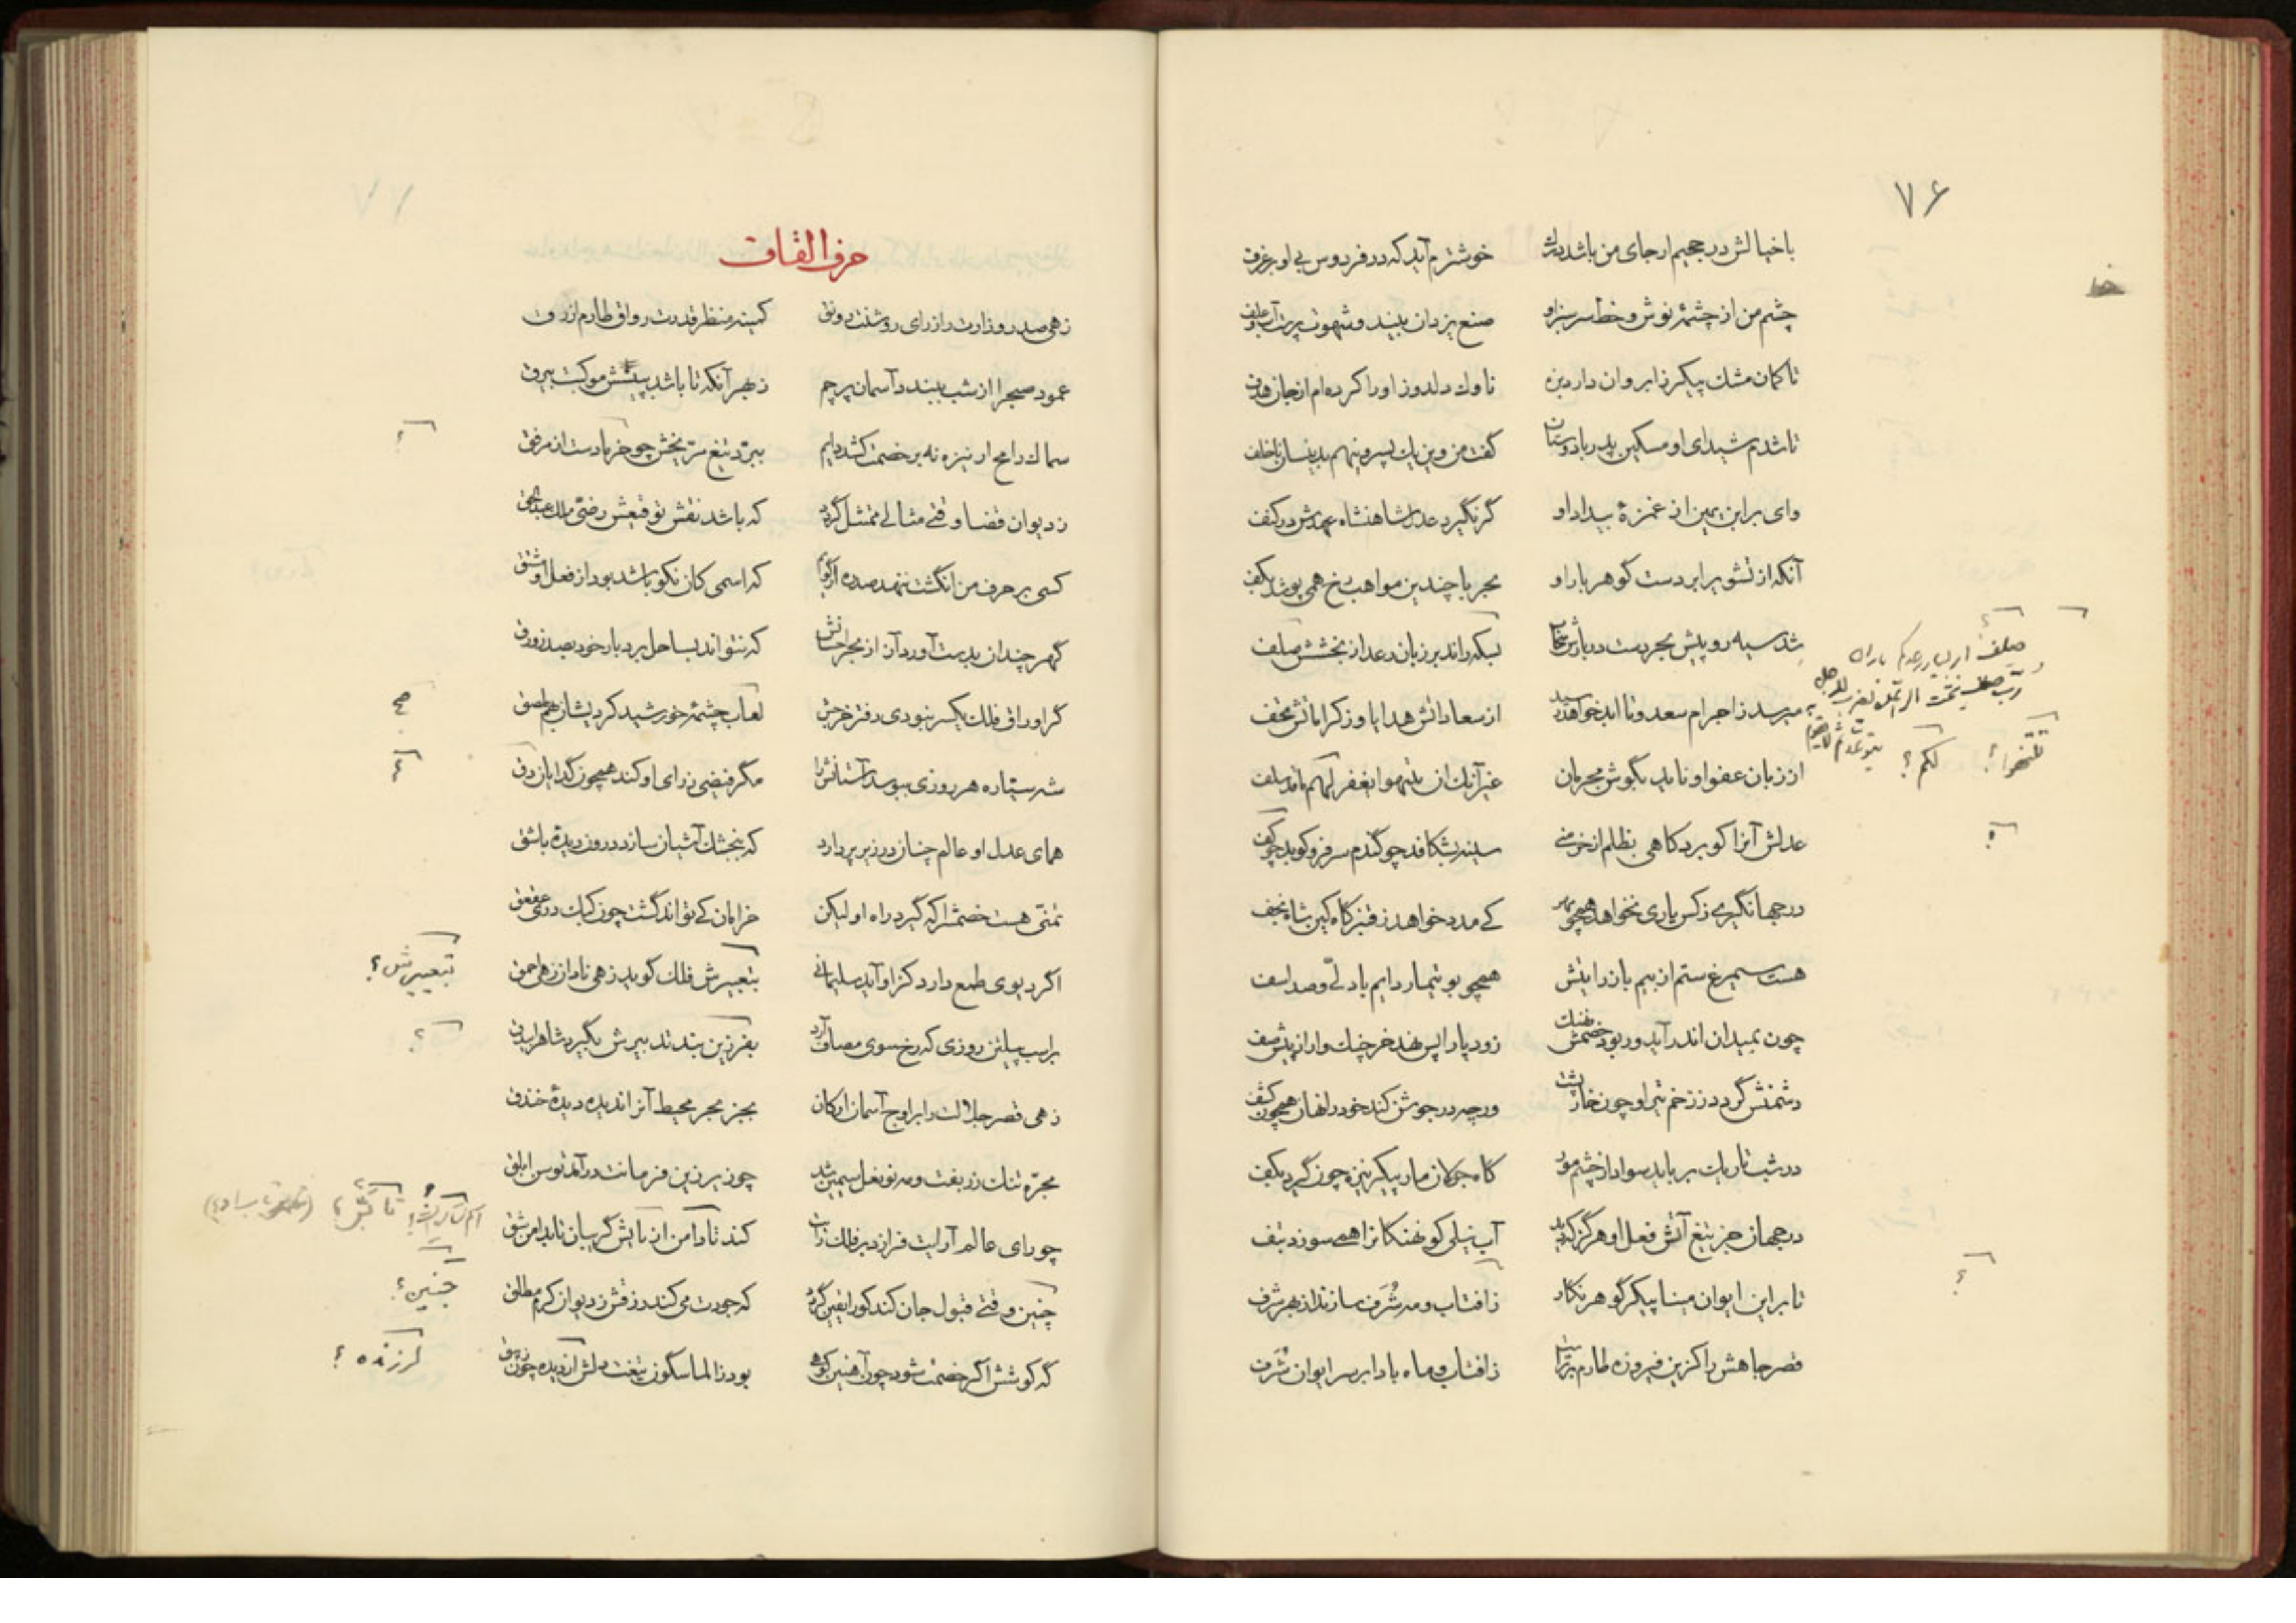 ۷۶
با خیالش در جحیم ار جای من باشد درک خوشترم آید که در فردوس بی او بر غرف
چشم من از چشمهٔ نوش و خط سرسبز او صنع یزدان بیند و شهوت پرست آب و علف
تا کمان مشک پیکر ز ابروان دارد بزه ناوک دلدوز او را کرده‌ام از جان هدف
تا شدم شیدای او مسکین پدر با دوستان گفت من وین یک پسر وینهم بدینسان ناخلف
وای بر ابن یمین از غمزهٔ بیداد او گر نگیرد عدل شاهنشاه عهدش در کنف
آنکه از تشویر ابر دست گوهر بار او بحر با چندین مواهب رخ همی پوشد بکف
شد سیه رو پیش بحر دست دربارش سحاب بسکه راند بر زبان رعد از بخشش صلف
میرسد ز اجرام سعد و تا ابد خواهد رسید از سعاداتش هدایا وز کراماتش تحف
از زبان عفو او ناید بگوش مجرمان غیر آنک ان ینتهوا یغفر لهم ما قد سلف
عدلش آنرا کو برد کاهی بظلم از خرمنی سینه بشکافد چو گندم سر فرو کوبد چو کف
در جهانگیری ز کس یاری نخواهد همچو مهر کی مدد خواهد ز قنبر گاه کین شاه نجف
هست سیمرغ ستم از بیم باز رایتش همچو بوتیمار دایم با دلی و صد اسف
چون بمیدان اندر آید ور بود خصمش نهنگ زود پا را پس نهد خرچنگ وار از پیش صف
دشمنش گردد ز زخم تیر او چون خارپشت ورچه در جوشن کند خود را نهان همچون کشف
در شب تاریک برباید سواد از چشم مور گاه جولان مار پیکر نیزه چون گیرد بکف
در جهان جز تیغ آتش فعل او هرگز که دید آب نیلی کو نهنگانرا همی سوزد بتف
تا بر این ایوان مینا پیکر گوهر نگار ز افتاب و مه شُرَف سازند از بهر شرف
قصر جاهش را کزین فیروزه طارم برتر است ز افتاب و ماه بادا بر سر ایوان شُرَف
صلف
لهم ؟
؟
حرف القاف
زهی صدر وزارت را ز رای روشنت رونق کمینه منظر قدرت رواق طارم ازرق
عمود صبح را از شب ببندد آسمان پرچم ز بهر آنکه تا باشد بپیش موکبت بیرق
سماک رامح ار نیزه نه بر خصمت کشد دایم ببرّد تیغ مریخش چو خر بادست از مرفق
ز دیوان قضا وقتی مثالی ممتثل گردد که باشد نقش توقیعش رضی ملک عبدالحق
کسی بر حرف من انگشت ننهد صدره ار گویم که اسمی کان نکو باشد بود از فعل او مشتق
گهر چندان بدست آورد آن از بحر احسانش که نتواند بساحل برد بار خود بصد زورق
گر اوراق فلک یکسر نبودی دفتر خرجش لعاب چشمهٔ خورشید کردیشان بهم ملصق
شه سیّاره هر روزی ببوسد آستانش را مگر فیضی ز رای او کند همچون گدایان دق
همای عدل او عالم چنان در زیر پر دارد که بنجشک آشیان سازد درون دیدهٔ باشق
تمنّی هست خصمش را که گیرد راه او لیکن خرامان کی تواند گشت چون کبک دری عقعق
اگر دیوی طمع دارد کز او آید سلیمانی بتعییرش فلک گوید زهی نادان زهی احمق
بر اسب پیلتن روزی که رخ سوی مصاف آرد بفرزین بند تدبیرش بگیرد شاه را بیدق
زهی قصر جلالت را بر اوج آسمان ارکان بجز بحر محیط آنرا ندیده دیدهٔ خندق
مجرّه تنگ زربفت و مه نو نعل سیمین شد چو زیر زین فرمانت درآمد توسن ابلق
چو رای عالم آرایت فرازد بر فلک رایت کند تا دامن از تابش گریبان تا بدامن شق
چنین وقتی قبول جان کند کو را یقین گردد که جودت می کند رزقش ز دیوان کرم مطلق
گه کوشش اگر خصمت شود چون آهنین کوهی بود ز الماسگون تیغت دلش لرزیده چون زیبق
؟
تعییرش ؟
؟
چنین ؟
لرزنده ؟
۷۷